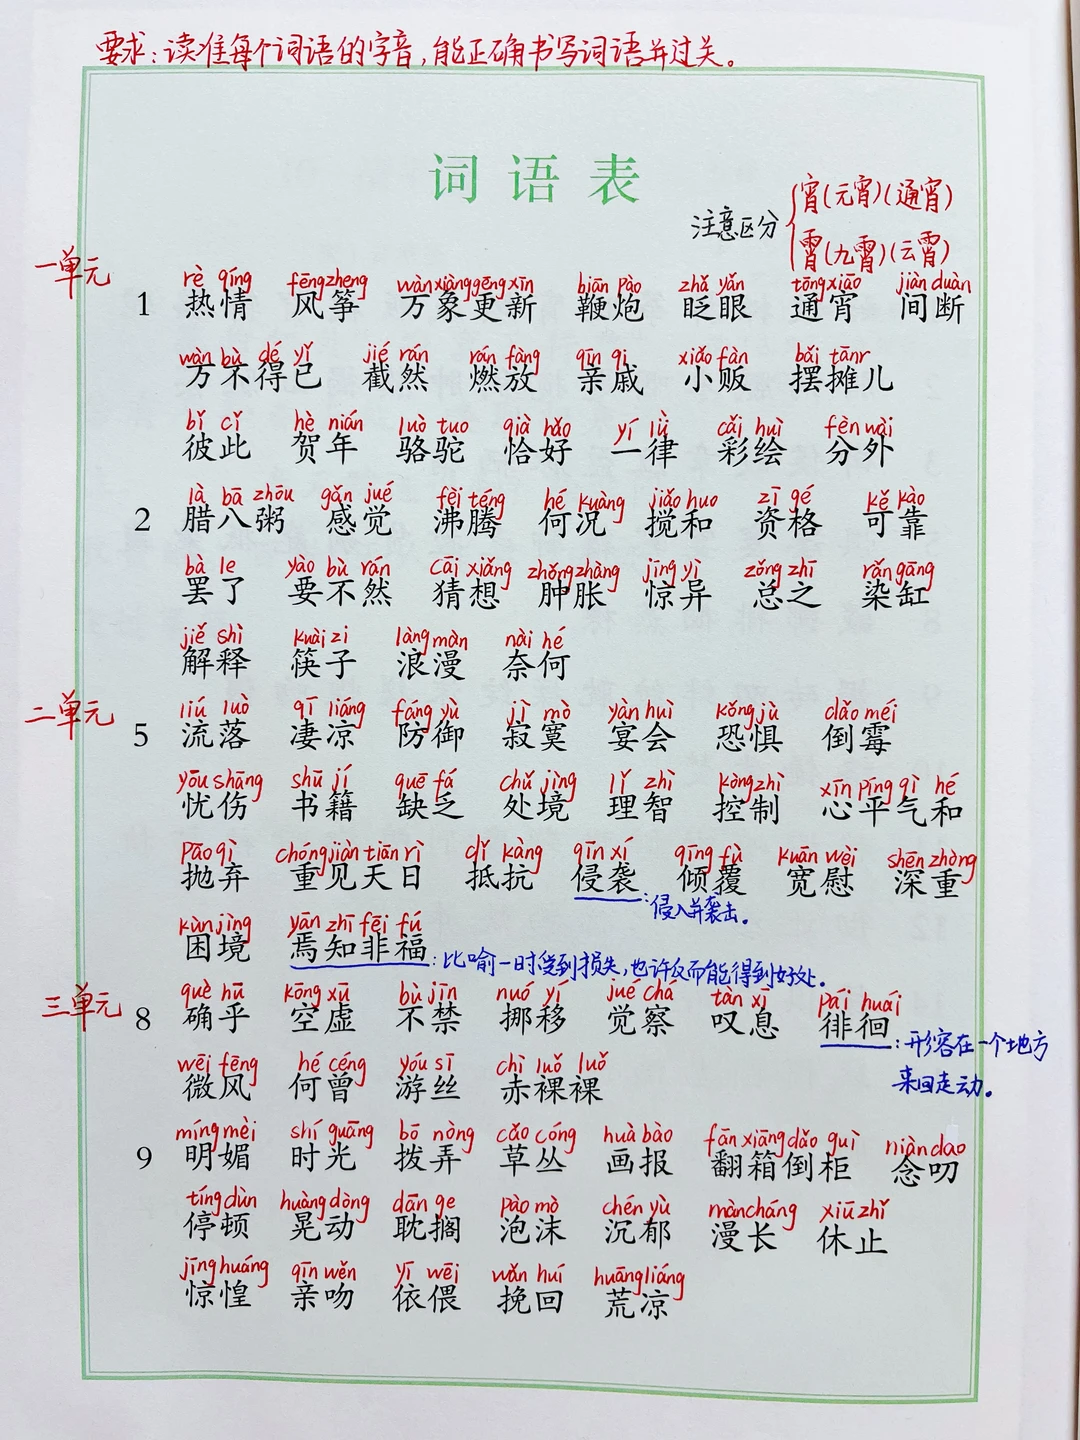 要求：读准每个词语的字音，能正确书写词语并过关。
词语表
注意区分
宵（元宵）（通宵）
霄（九霄）（云霄）
一单元
rè qíng fēng zheng wàn xiàng gēng xīn biān pào zhǎ yǎn tōng xiāo jiàn duàn
1 热情 风筝 万象更新 鞭炮 眨眼 通宵 间断
wàn bù dé yǐ jié rán rán fàng qīn qi xiǎo fàn bǎi tānr
万不得已 截然 燃放 亲戚 小贩 摆摊儿
bǐ cǐ hè nián luò tuo qià hǎo yí lǜ cǎi huì fèn wài
彼此 贺年 骆驼 恰好 一律 彩绘 分外
là bā zhōu gǎn jué fèi téng hé kuàng jiǎo huo zī gé kě kào
2 腊八粥 感觉 沸腾 何况 搅和 资格 可靠
bà le yào bù rán cāi xiǎng zhǒng zhàng jīng yì zǒng zhī rǎn gāng
罢了 要不然 猜想 肿胀 惊异 总之 染缸
jiě shì kuài zi làng màn nài hé
解释 筷子 浪漫 奈何
二单元
liú luò qī liáng fáng yù jì mò yàn huì kǒng jù dǎo méi
5 流落 凄凉 防御 寂寞 宴会 恐惧 倒霉
yōu shāng shū jí quē fá chǔ jìng lǐ zhì kòng zhì xīn píng qì hé
忧伤 书籍 缺乏 处境 理智 控制 心平气和
pāo qì chóng jiàn tiān rì dǐ kàng qīn xí qīng fù kuān wèi shēn zhòng
抛弃 重见天日 抵抗 侵袭 倾覆 宽慰 深重
：侵入并袭击。
kùn jìng yān zhī fēi fú
困境 焉知非福：比喻一时受到损失，也许反而能得到好处。
三单元
què hū kōng xū bù jīn nuó yí jué chá tàn xī pái huái
8 确乎 空虚 不禁 挪移 觉察 叹息 徘徊：形容在一个地方
来回走动。
wēi fēng hé céng yóu sī chì luǒ luǒ
微风 何曾 游丝 赤裸裸
míng mèi shí guāng bō nòng cǎo cóng huà bào fān xiāng dǎo guì niàn dao
9 明媚 时光 拨弄 草丛 画报 翻箱倒柜 念叨
tíng dùn huàng dòng dān ge pào mò chén yù màn cháng xiū zhǐ
停顿 晃动 耽搁 泡沫 沉郁 漫长 休止
jīng huáng qīn wěn yī wēi wǎn huí huāng liáng
惊惶 亲吻 依偎 挽回 荒凉